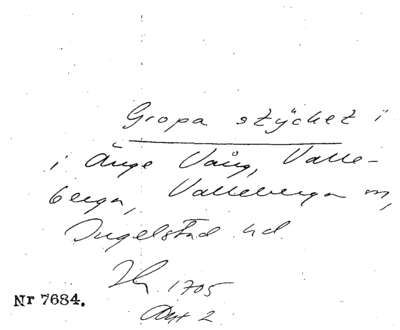 Gropa stycket i
i Änge Vång, Valle-
berga, Valleberga sn,
Ingelstad hd.
1705
Akt 2
Nr 7684.